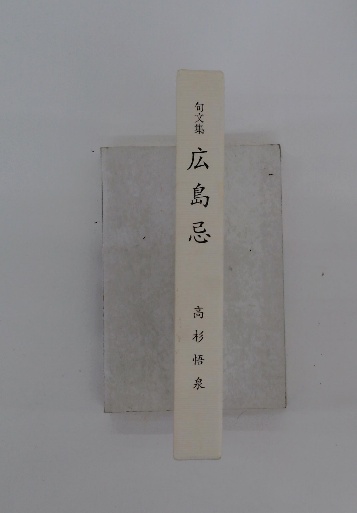 句文集
広島忌
高杉悟泉